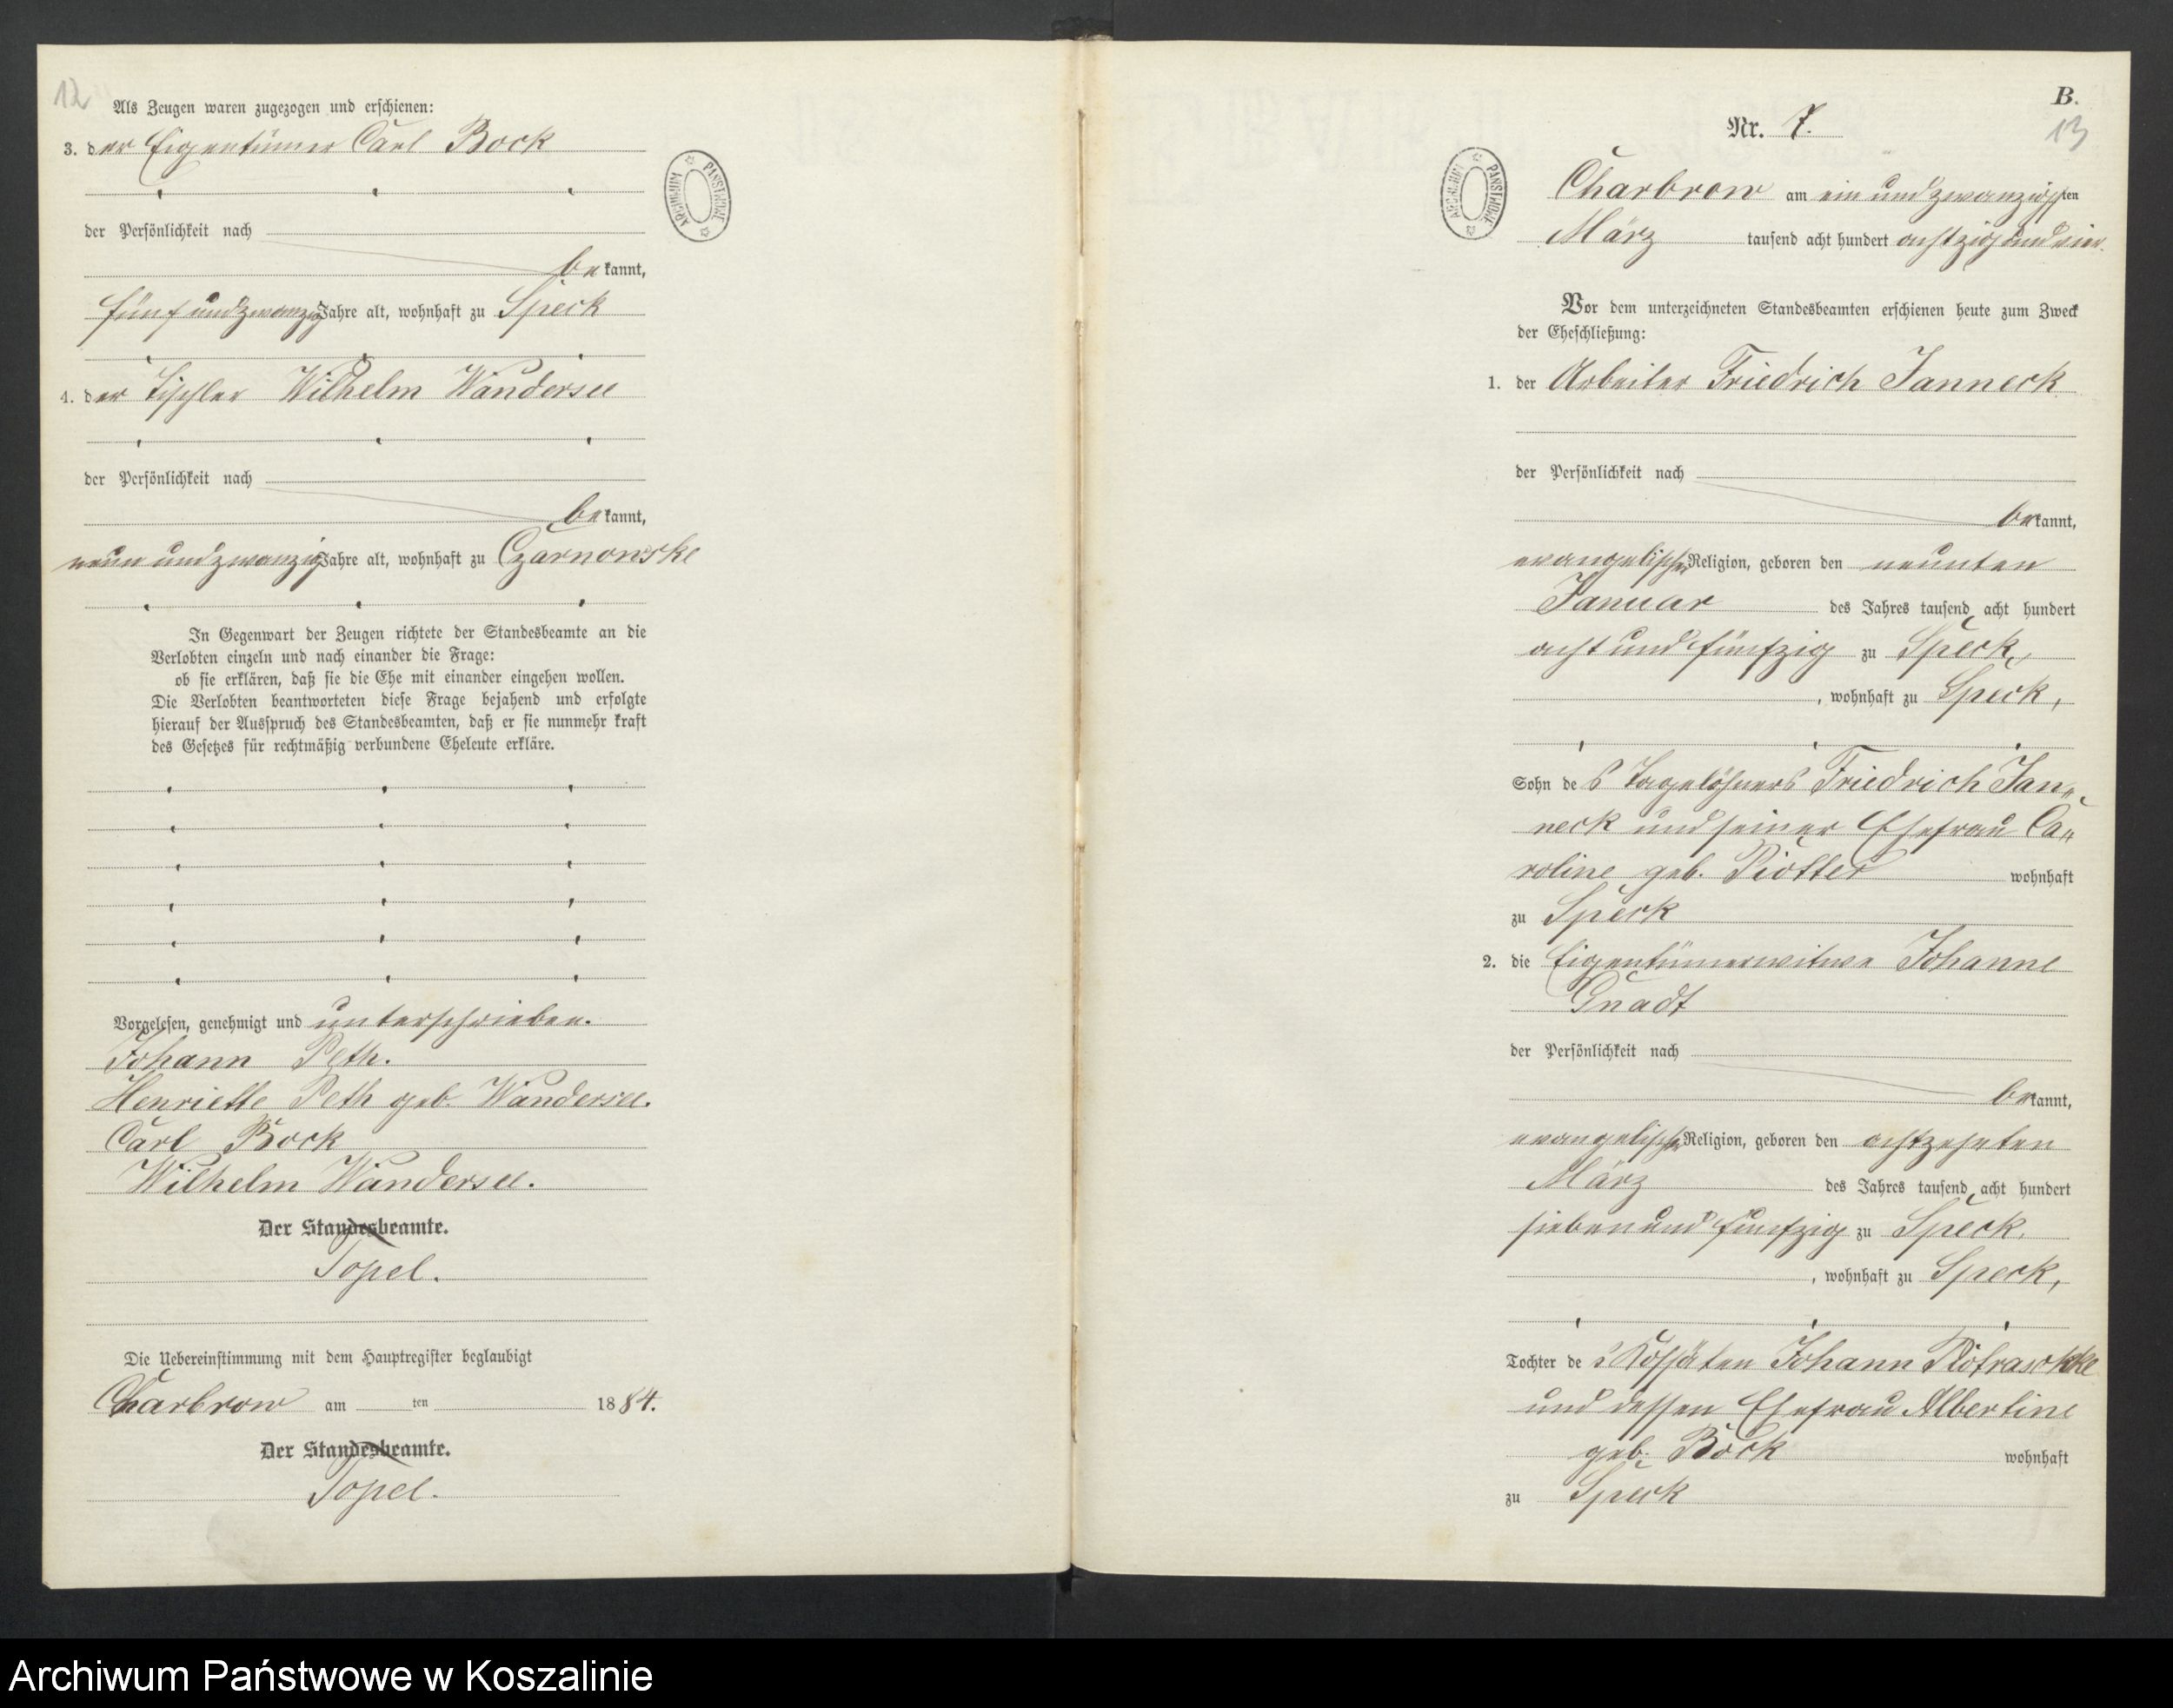 12
Als Zeugen waren zugezogen und erschienen:
3. der Eigentümer Carl Bock
der Persönlichkeit nach
bekannt,
fünfundzwanzig Jahre alt, wohnhaft zu Speck
4. der Tischler Wilhelm Wandersee
der Persönlichkeit nach
bekannt,
neunundzwanzig Jahre alt, wohnhaft zu Czarnowske
In Gegenwart der Zeugen richtete der Standesbeamte an die
Verlobten einzeln und nach einander die Frage:
ob sie erklären, daß sie die Ehe mit einander eingehen wollen.
Die Verlobten beantworteten diese Frage bejahend und erfolgte
hierauf der Ausspruch des Standesbeamten, daß er sie nunmehr kraft
des Gesetzes für rechtmäßig verbundene Eheleute erkläre.
Vorgelesen, genehmigt und unterschrieben.
Johann Peth.
Henriette Peth geb. Wandersee.
Carl Bock
Wilhelm Wandersee.
Der Standesbeamte.
Topel.
Die Uebereinstimmung mit dem Hauptregister beglaubigt
Charbrow am ten 1884.
Der Standesbeamte.
Topel.
ARCHIWUM PAŃSTWOWE
B.
13
Nr. 7.
ARCHIWUM PAŃSTWOWE
Charbrow am ein und zwanzigsten
März tausend acht hundert achtzig und vier.
Vor dem unterzeichneten Standesbeamten erschienen heute zum Zweck
der Eheschließung:
1. der Arbeiter Friedrich Janneck
der Persönlichkeit nach
bekannt,
evangelischer Religion, geboren den neunten
Januar des Jahres tausend acht hundert
acht und fünfzig zu Speck,
, wohnhaft zu Speck,
Sohn des Tagelöhners Friedrich Jan„
neck und seiner Ehefrau Ca„
roline geb. Piotter wohnhaft
zu Speck
2. die Eigentümerwitwe Johanne
Gnadt
der Persönlichkeit nach
bekannt,
evangelischer Religion, geboren den achtzehnten
März des Jahres tausend acht hundert
sieben und fünfzig zu Speck,
, wohnhaft zu Speck,
Tochter des Kossäten Johann Piotraschke
und dessen Ehefrau Albertine
geb. Bock wohnhaft
zu Speck
Archiwum Państwowe w Koszalinie